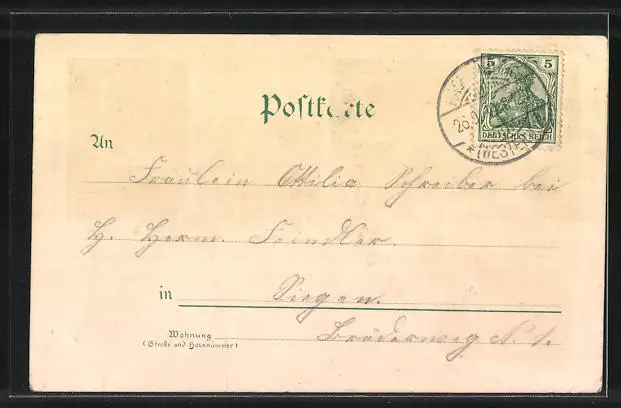 5 5
DEUTSCHES REICH
Postkarte
An
Fräulein Ottilia Schreiber bei
H. Herm. Feindler.
in Siegen.
Wohnung Brüderweg N. 1.
(Straße und Hausnummer)